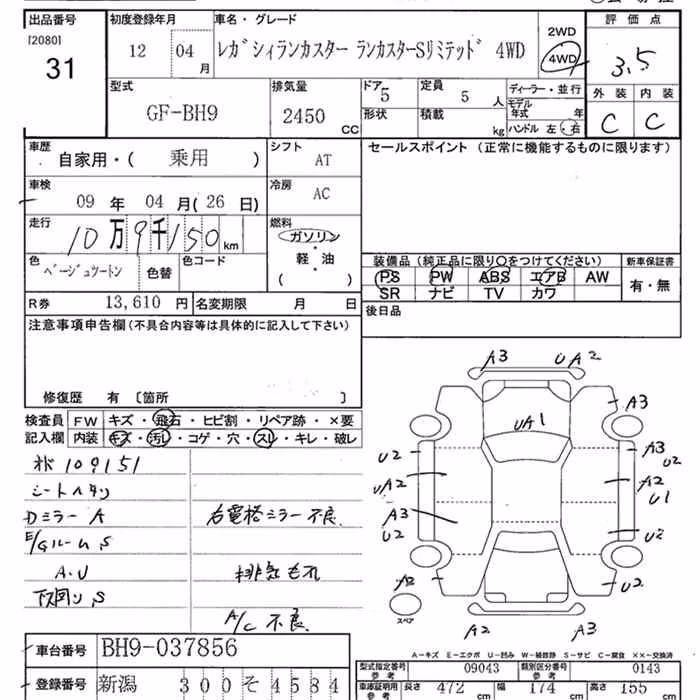 出品番号 初度登録年月 車名・グレード 評価点
[2080] 31
12 04月
レガシィランカスター ランカスターSリミテッド 4WD
2WD
4WD
3.5
型式 排気量 ドア 定員 ディーラー・並行 外装 内装
GF-BH9 2450 CC 5 5人 モデル年式 年
形状 積載 kg ハンドル 左・右 C C
車歴 シフト セールスポイント (正常に機能するものに限ります)
自家用・( 乗用 ) AT
車検 冷房
09年 04月(26日) AC
走行 燃料
10万9千150km ガソリン
軽・油
( )
色 色替 色コード
ベージュツートン
装備品(純正品に限り○をつけてください) 新車保証書
PS PW ABS エアB AW 有・無
SR ナビ TV カワ
R券 13,610円 名変期限 月 日
後日品
注意事項申告欄(不具合内容等は具体的に記入して下さい)
修復歴 有 [箇所 ]
検査員 FW キズ・飛石・ヒビ割・リペア跡・×要
記入欄 内装 キズ・汚れ・コゲ・穴・スレ・キレ・破レ
109151
シートヘタリ
Dミラー A
右電格ミラー不良
E/Gルーム S
A.U
排気もれ
下回り S
A/C不良
A3 UA2
A3
UA1
U2 A3
U2
UA2 A2
U1
A3
U2 U2
A2 U2
スペア
A2 A3
A-キズ E-エクボ U-凹み W-補修跡 S-サビ C-腐食 ××-交換済
車台番号 BH9-037856
型式指定番号 参考 09043 類別区分番号 参考 0143
登録番号 新潟 300 そ 4584
車庫証明用 参考 長さ 472 cm 幅 174 cm 高さ 155 cm